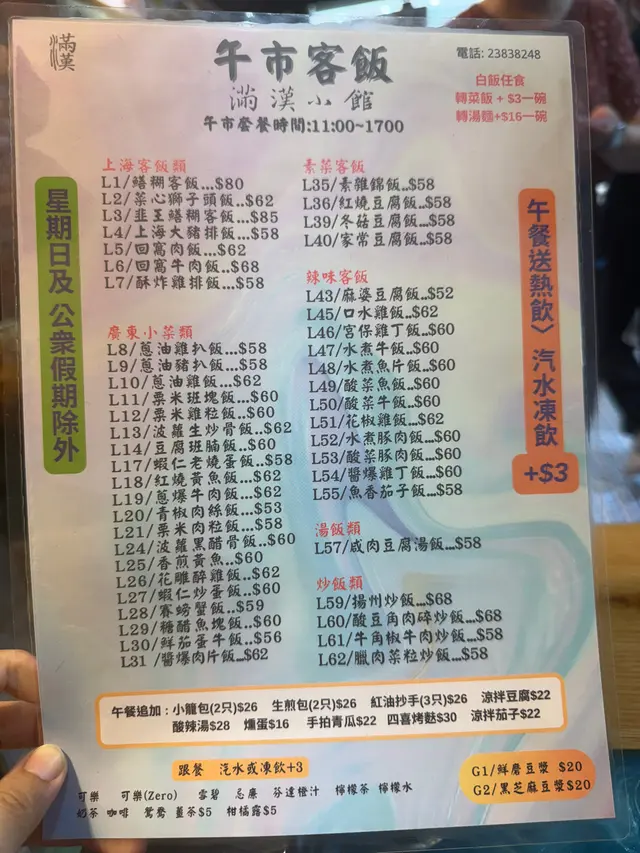 滿漢
午市客飯
滿漢小館
午市套餐時間:11:00~1700
電話: 23838248
白飯任食
轉菜飯 + $3一碗
轉湯麵+$16一碗
星期日及 公眾假期除外
上海客飯類
L1/鱔糊客飯...$80
L2/菜心獅子頭飯...$62
L3/韭王鱔糊客飯...$85
L4/上海大豬排飯...$58
L5/回窩肉飯...$62
L6/回窩牛肉飯...$68
L7/酥炸雞排飯...$58
廣東小菜類
L8/蔥油雞扒飯...$58
L9/蔥油豬扒飯...$58
L10/蔥油雞飯...$62
L11/粟米班塊飯...$60
L12/粟米雞粒飯...$60
L13/波蘿生炒骨飯...$62
L14/豆腐班腩飯...$60
L17/蝦仁老燒蛋飯...$58
L18/紅燒黃魚飯...$62
L19/蔥爆牛肉飯...$62
L20/青椒肉絲飯...$53
L21/粟米肉粒飯...$58
L24/波蘿黑醋骨飯...$60
L25/香煎黃魚...$60
L26/花雕醉雞飯...$62
L27/蝦仁炒蛋飯...$60
L28/賽螃蟹飯...$59
L29/糖醋魚塊飯...$60
L30/鮮茄蛋牛飯...$56
L31 /醬爆肉片飯...$62
素菜客飯
L35/素雜錦飯...$58
L36/紅燒豆腐飯...$58
L39/冬菇豆腐飯...$58
L40/家常豆腐飯...$58
辣味客飯
L43/麻婆豆腐飯...$52
L45/口水雞飯...$62
L46/宮保雞丁飯...$60
L47/水煮牛飯...$60
L48/水煮魚片飯...$60
L49/酸菜魚飯...$60
L50/酸菜牛飯...$60
L51/花椒雞飯...$62
L52/水煮豚肉飯...$60
L53/酸菜豚肉飯...$60
L54/醬爆雞丁飯...$60
L55/魚香茄子飯...$58
湯飯類
L57/咸肉豆腐湯飯...$58
炒飯類
L59/揚州炒飯...$68
L60/酸豆角肉碎炒飯...$68
L61/牛角椒牛肉炒飯...$58
L62/臘肉菜粒炒飯...$58
午餐送熱飲〉 汽水凍飲
+$3
午餐追加：小籠包(2只)$26 生煎包(2只)$26 紅油抄手(3只)$26 涼拌豆腐$22
酸辣湯$28 燻蛋$16 手拍青瓜$22 四喜烤麩$30 涼拌茄子$22
跟餐 汽水或凍飲+3
可樂 可樂(Zero) 雪碧 忌廉 芬達橙汁 檸檬茶 檸檬水
奶茶 咖啡 鴛鴦 薑茶$5 柑橘露$5
G1/鮮磨豆漿 $20
G2/黑芝麻豆漿$20